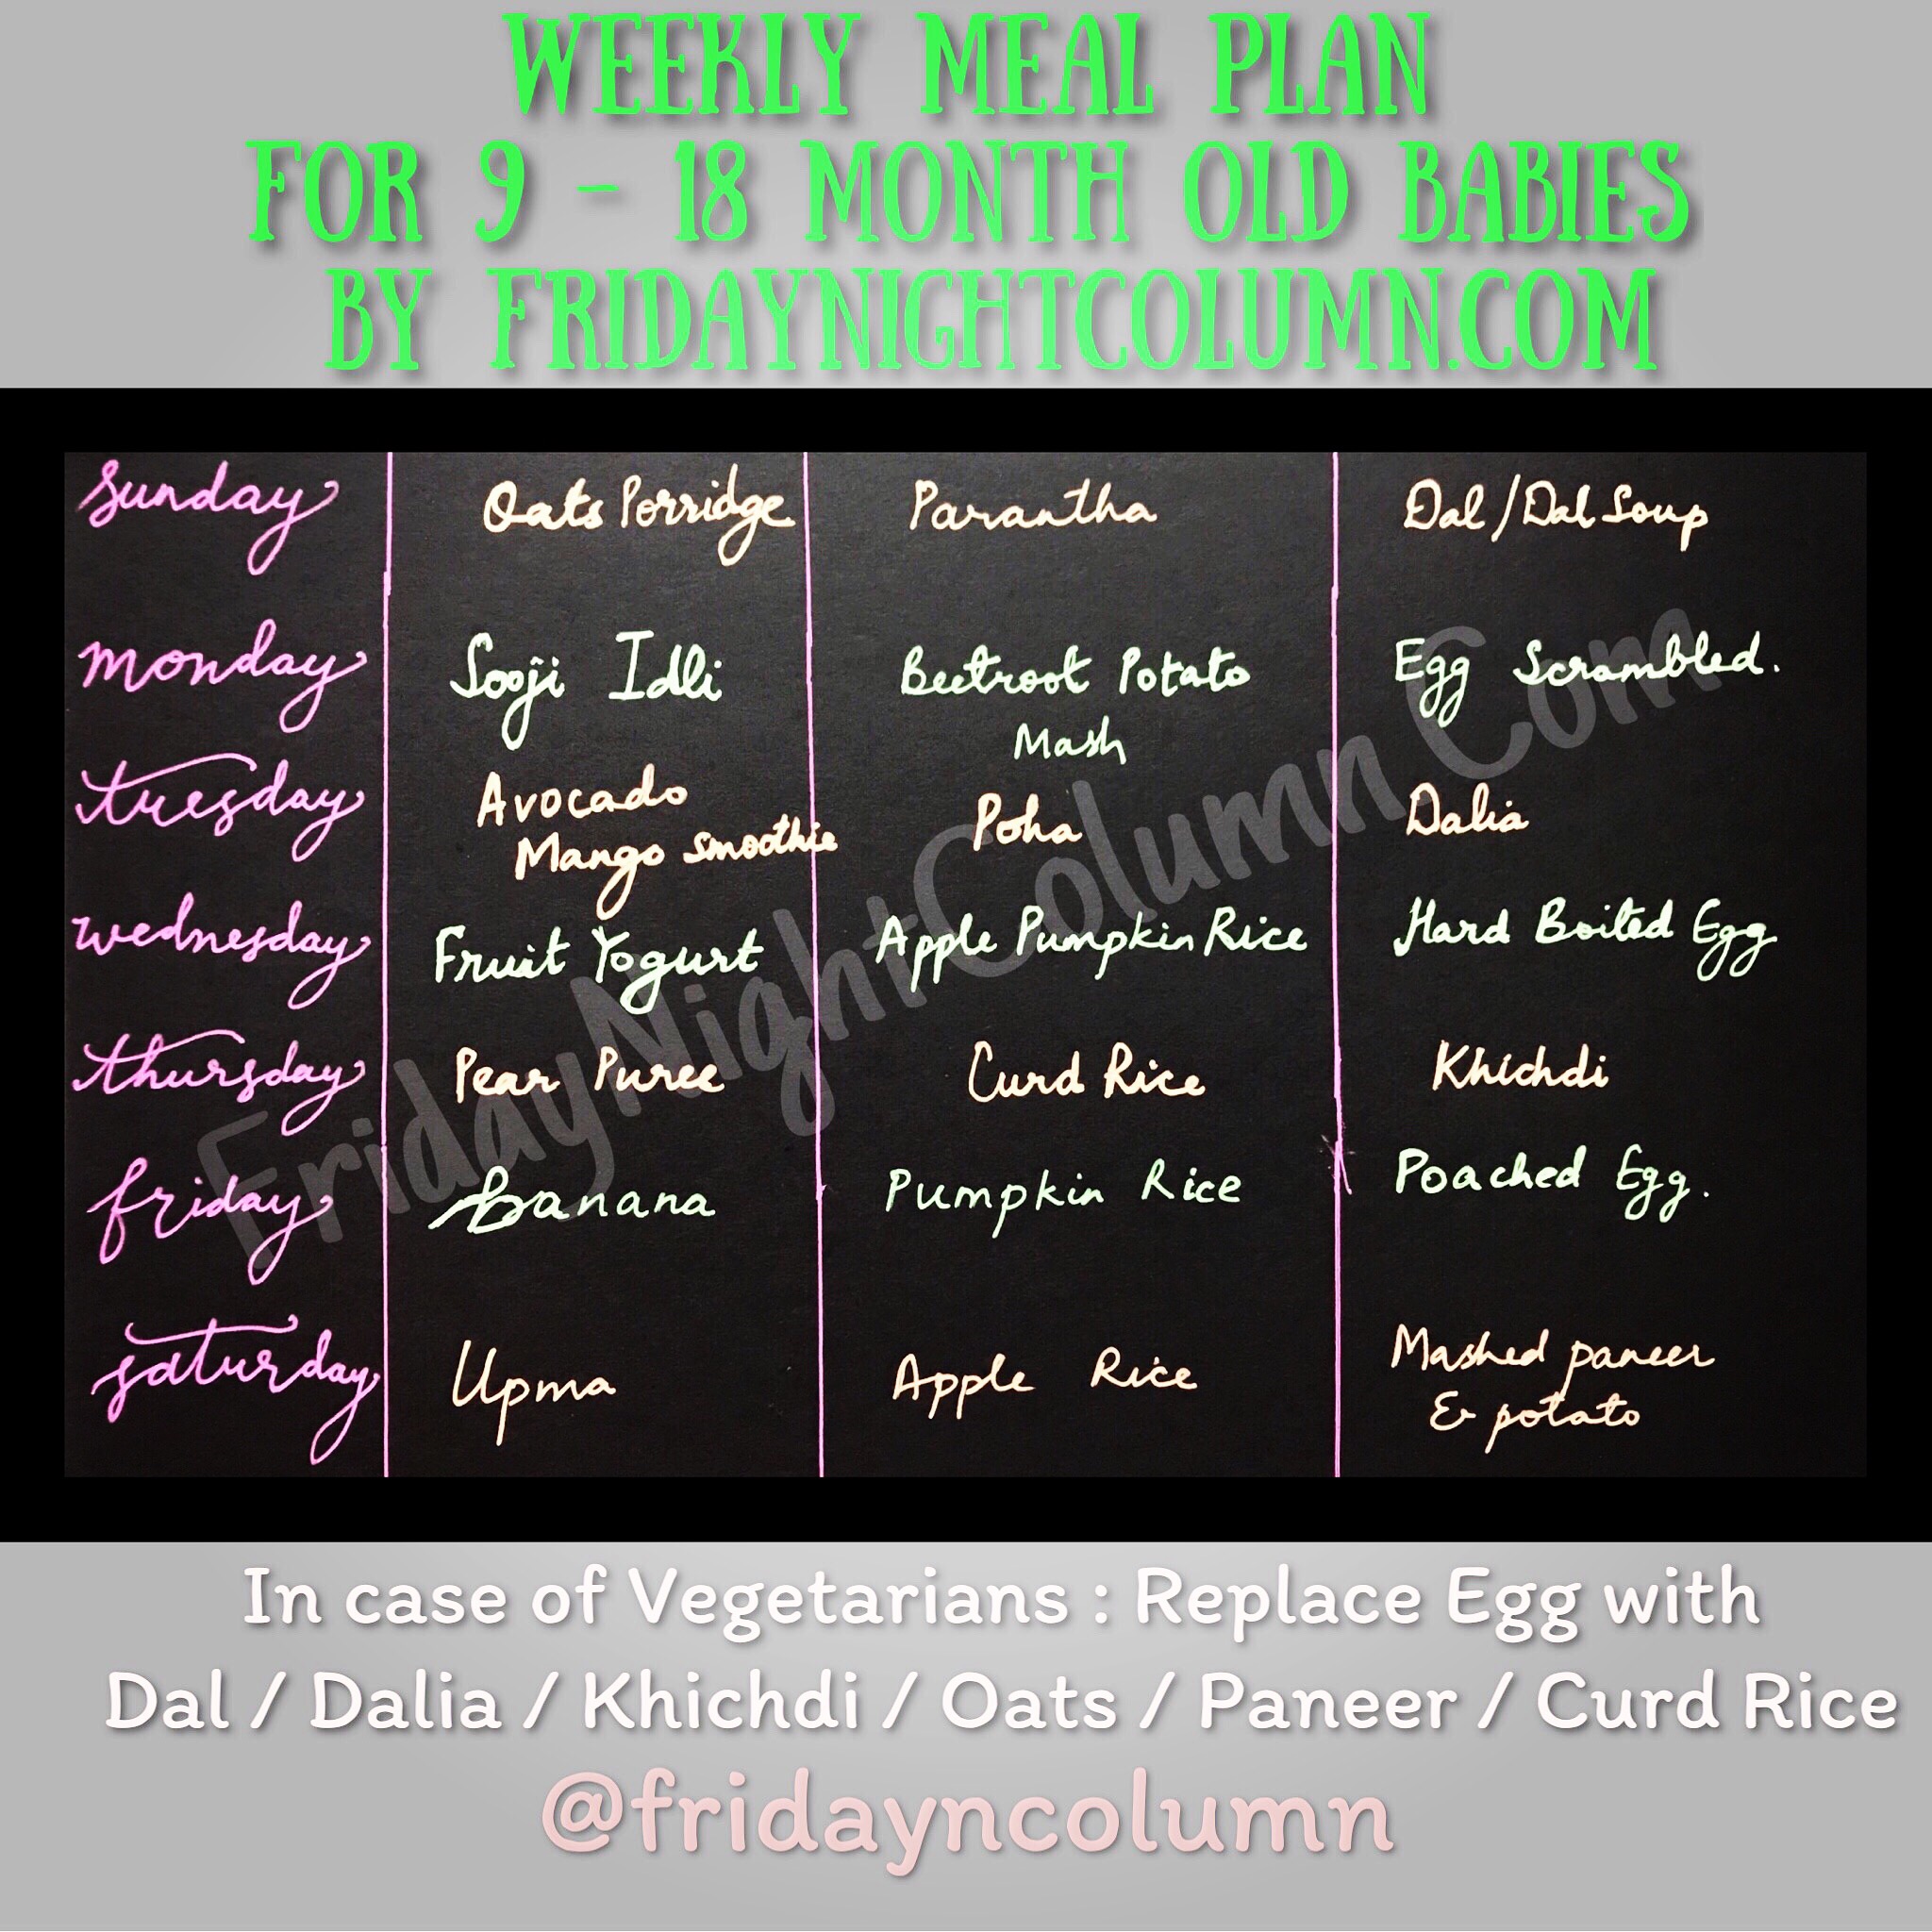 WEEKLY MEAL PLAN
FOR 9 - 18 MONTH OLD BABIES
BY FRIDAYNIGHTCOLUMN.COM
Sunday Oats Porridge Parantha Dal/Dal Soup
Monday Sooji Idli Beetroot Potato Egg Scrambled.
Mash
Tuesday Avocado Poha Dalia
Mango smoothie
Wednesday Fruit Yogurt Apple Pumpkin Rice Hard Boiled Egg
Thursday Pear Puree Curd Rice Khichdi
Friday Banana Pumpkin Rice Poached Egg.
Saturday Upma Apple Rice Mashed paneer
& potato
FridayNightColumn.Com
In case of Vegetarians : Replace Egg with
Dal / Dalia / Khichdi / Oats / Paneer / Curd Rice
@fridayncolumn